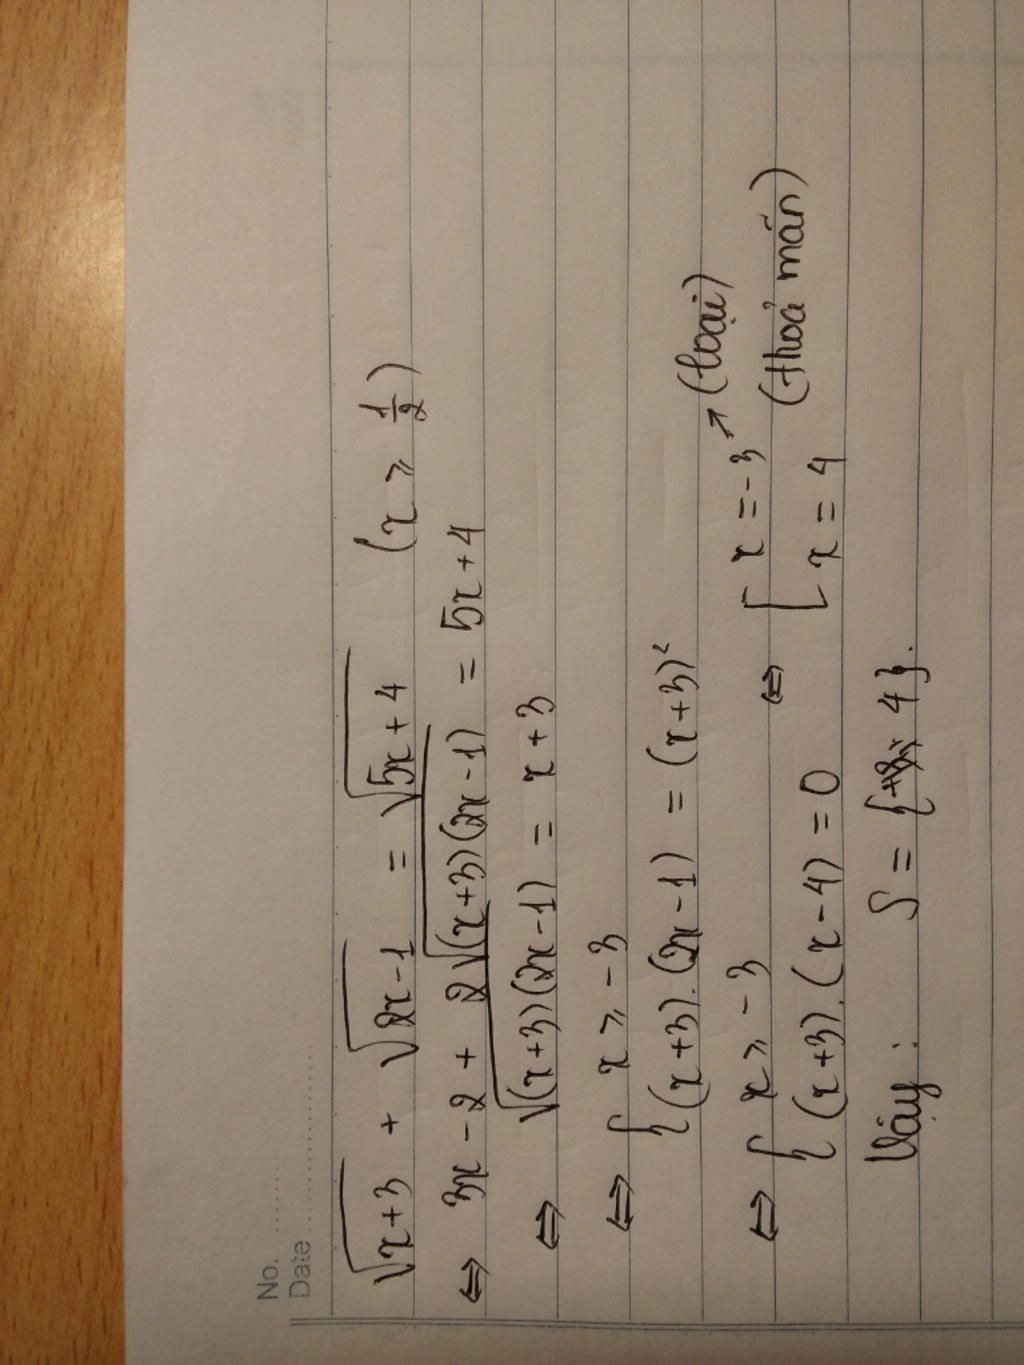 No. ............
Date ........................
√(x+3) + √(2x-1) = √(5x+4) (x ⩾ 1/2)
⇔ 3x - 2 + 2√((x+3)(2x-1)) = 5x + 4
⇔ √((x+3)(2x-1)) = x + 3
⇔ { x ⩾ -3
(x+3).(2x-1) = (x+3)²
⇔ { x ⩾ -3
(x+3).(x-4) = 0 ⇔ [ x = -3 → (loại)
x = 4 (thoả mãn)
Vậy : S = { 4}.